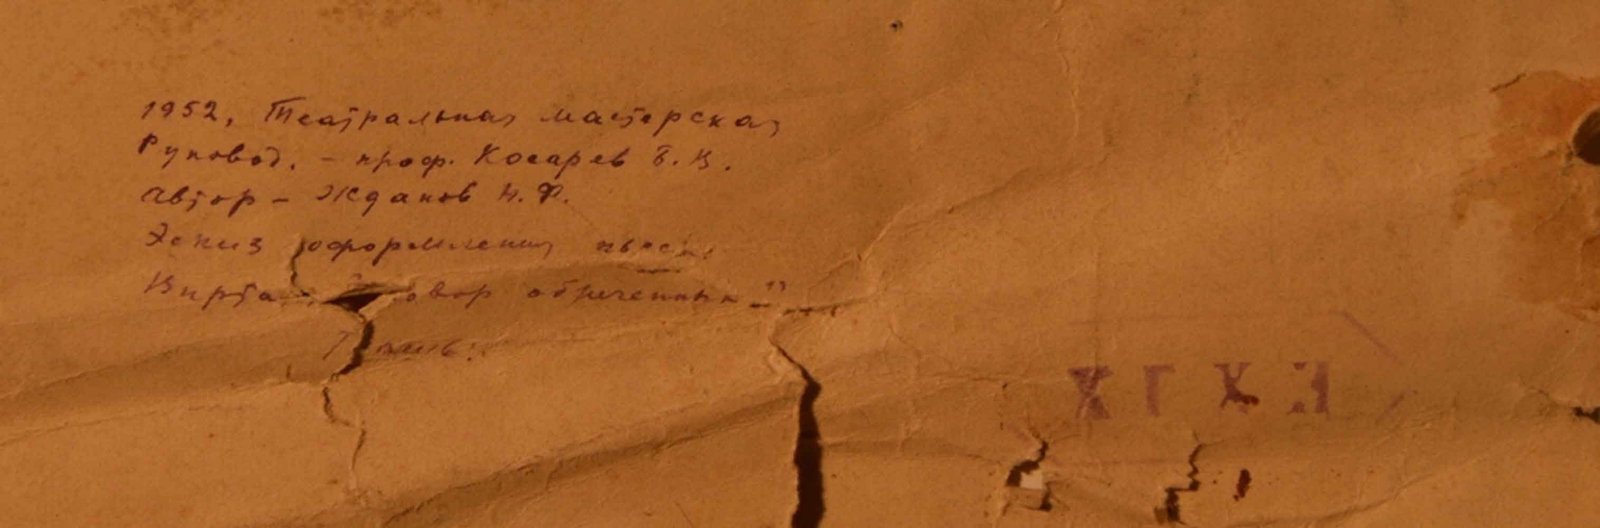 1952, Театральная мастерская
Руковод. - проф. Косарев Б.В.
Автор - Жданов Н.Ф.
Эскиз оформления пьесы
Вирта „Заговор обреченных"
ХГХИ